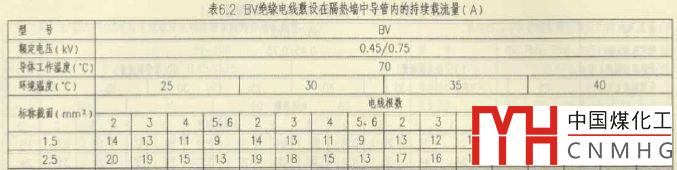 表6.2 BV绝缘电线敷设在隔热墙中导管内的持续载流量(A)
型 号 BV
额定电压(kV) 0.45/0.75
导体工作温度(℃) 70
环境温度(℃) 25 30 35 40
标称截面(mm²) 电线根数
2 3 4 5、6 2 3 4 5、6 2 3
1.5 14 13 11 9 14 13 11 9 13 12
2.5 20 19 15 13 19 18 15 13 17 16
中国煤化工
MH CNMHG